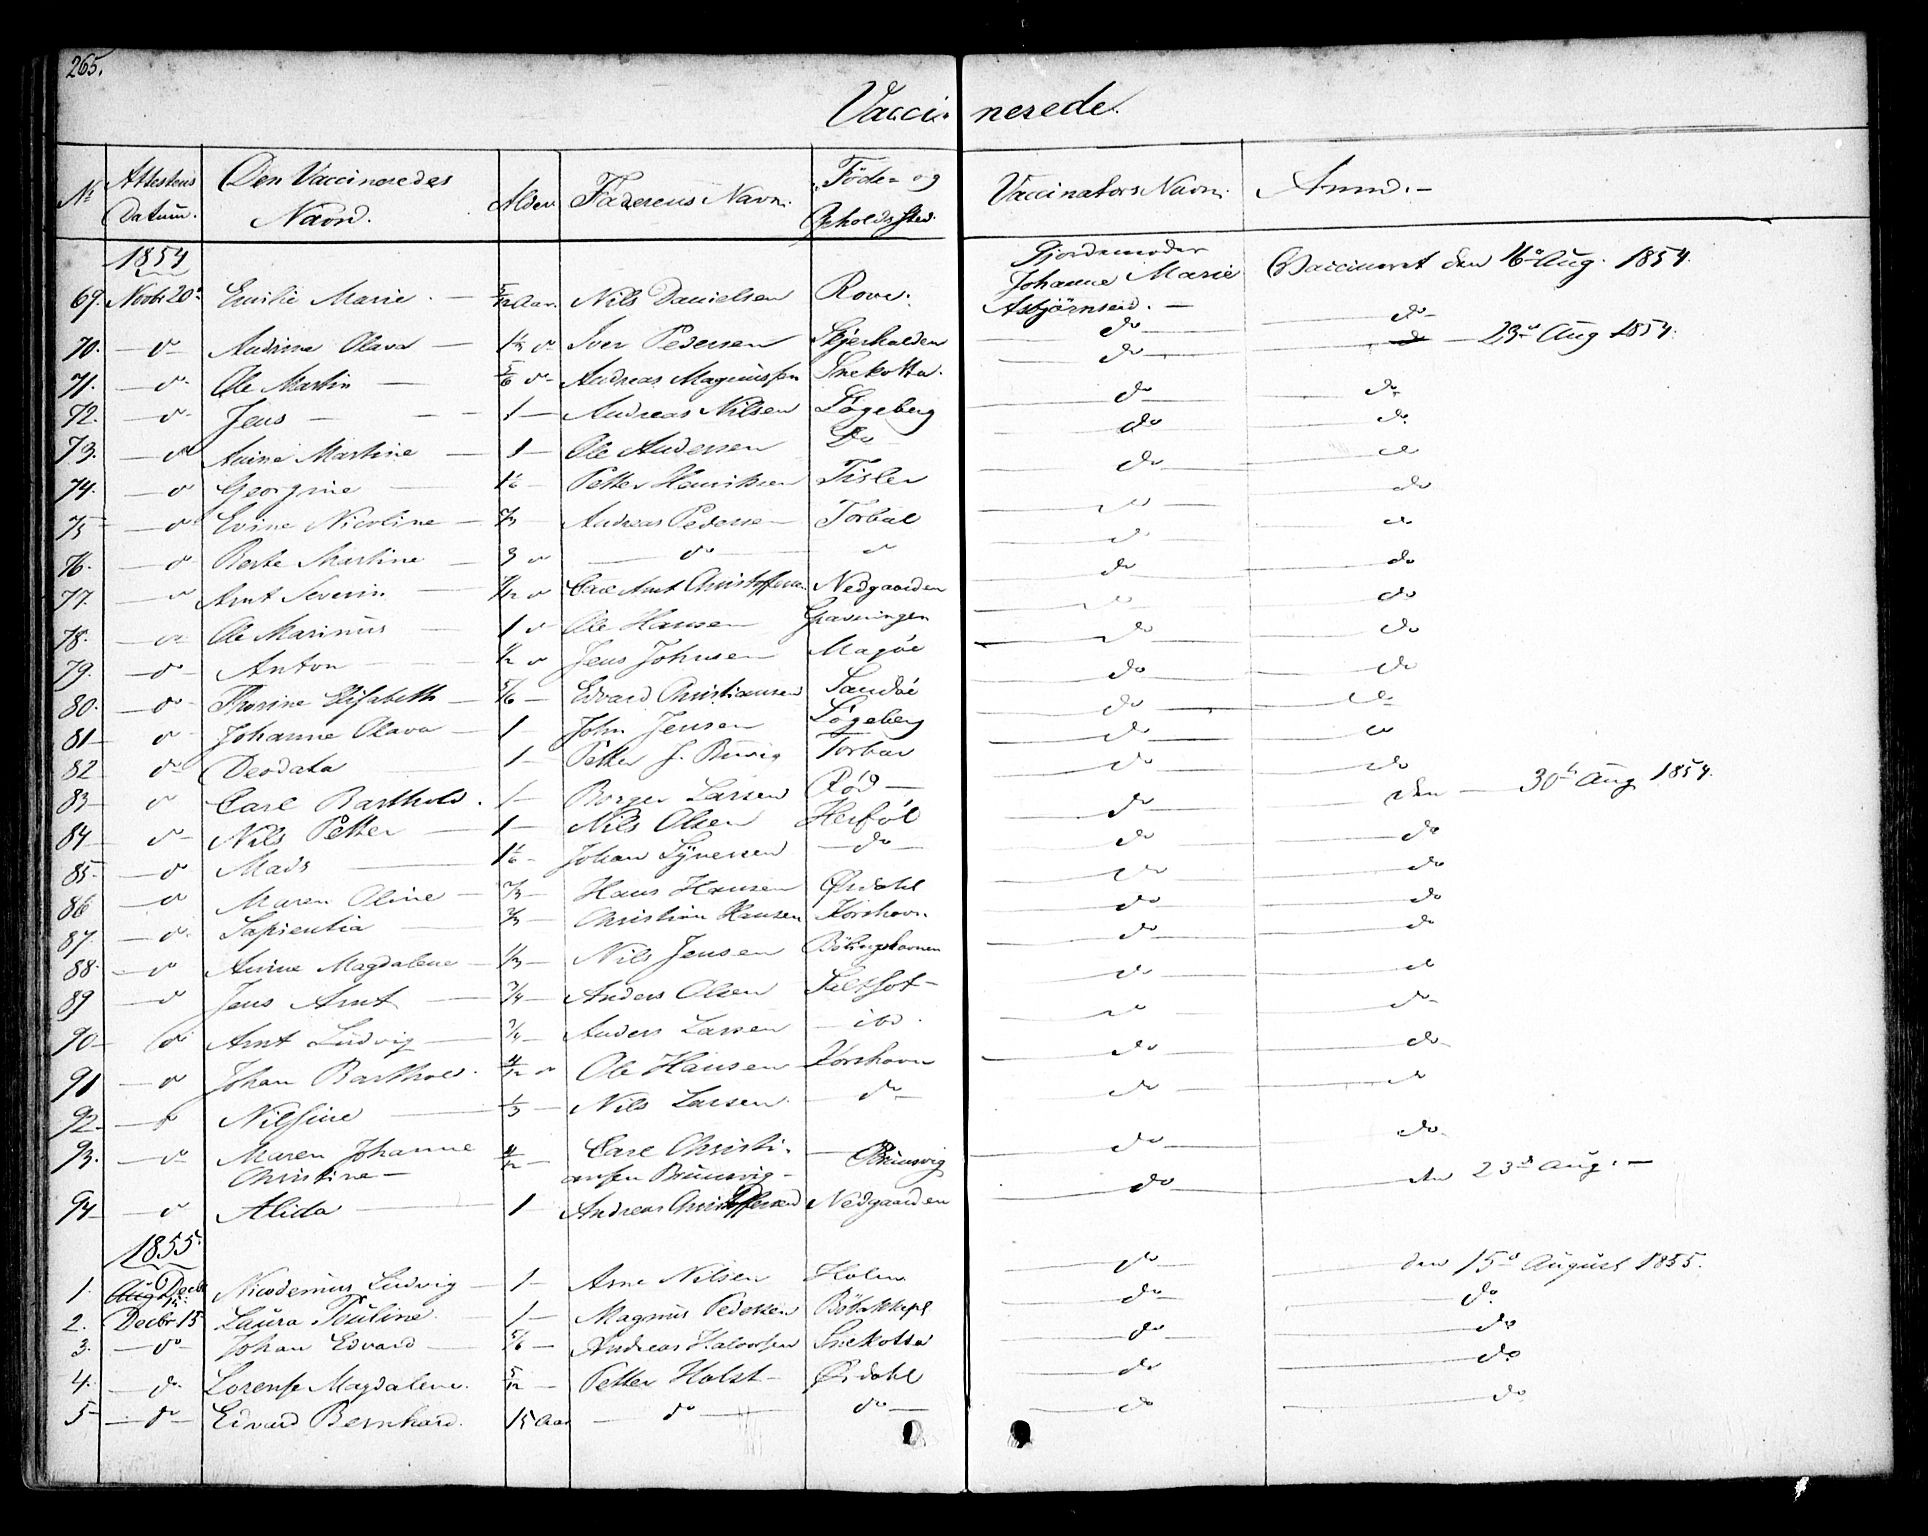 265.
Vaccinerede.
No Attestens Datum. Den Vaccineredes Navn. Alder Faderens Navn. Föde- og Opholdssted. Vaccinators Navn. Anm. -
1854 Gjordemoder
69. Novbr 20de Emilie Marie. - 5/12 Aar. Nils Danielsen Rove. Johanne Marie Asbjörnsen. - Vaccineret den 16de Aug. 1854.
70. - do - Andrine Olava - 1 1/2 do Iver Pedersen Skjerhalden do do
71. - do - Ole Martin - 5/6 do - Andreas Magnussen Snekotta. do do - 23de Aug 1854.
72. - do - Jens - 1 - Andreas Nilsen Lögeberg do do
73. - do Anine Martine - 1 - Ole Andersen Do do do
74. - do Georgine - 1 1/6 - Petter Henriksen Tisler do do
75 - do Evine Nicoline - 2/3 Andreas Pedersen Torbal do do
76. - do Berte Martine - 3 do - do - do do do
77. - do Arnt Severin - 7/12 do Carl Arnt Christoffersen Nedgaarden do do
78. - do - Ole Marinus - 1 do Ole Hansen Gravningen do do
79. - do - Anton - 1/2 do Jens Johnsen Magöe do do
80. - do - Thorine Elisabeth - 5/6 - Edvard Christiansen Sandöe do do
81 - do - Johanne Olava - 1 - John Jensen Lögeberg do do
82 do - Deodata - 1 - Petter J. Buvig Torbal do do
83 - do Carl Barthold. 1 - Borger Larsen Röd - do do
84 do - Nils Petter - 1 - Nils Olsen Herföl do den - 30te Aug 1854.
85. - do Mads - 1 1/6 - Johan Synersen - do - do do
86 - do Maren Oline - 2/3 - Hans Hansen Ørdahl do do
87. - do. Sapientia - 2/3 - Christian Hansen Korshavn do do
88. - do Anine Magdalene - 1/3 - Nils Jensen Bölingshavnen do do
89 - do Jens Arnt - 3/4 - Anders Olsen - do do
90 - do Arnt Ludvig - 3/4 - Anders Larsen - ibd. do do
91 - do Johan Barthold. 4/12 do Ole Hansen Korshavn do do
92 - do Nilsine - 1/3 - Nils Larsen. - do - do do
93. - do Maren Johanne Christine - 4/12 - Carl Christiansen Brunsvig - Brunsvig do do
94 - do Alida - 1 Andreas Christoffersen Nedgaarden do den 23de Aug. -
1855.
1. Aug Decbr 15. Nicodemus Ludvig - 1 - Arne Nilsen Holm do den 15de August 1855.
2. Decbr 15 Laura Pauline. 1 - Magnus Pedersen do do
3. - do - Johan Edvard - 5/6 - Andreas Halvorsen Snekotta do do
4. - do. Lorense Magdalene. 5/12 - Petter Holst - Ørdahl do do
5 - do - Edvard Bernhard. 15 Aar - do - do - do do